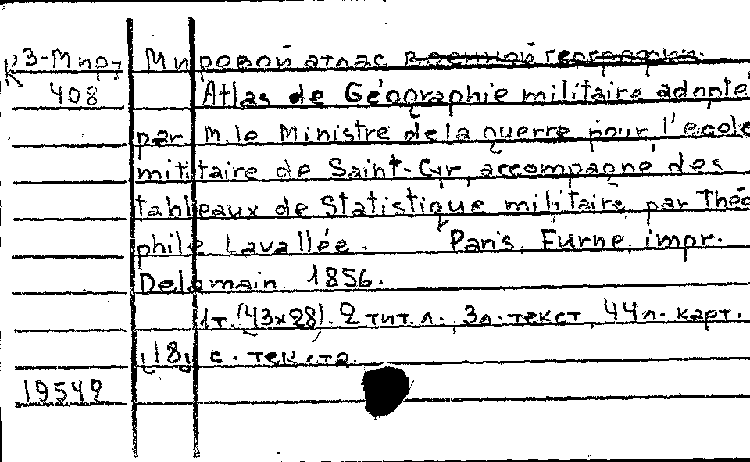 К 3-Мир Мировой атлас военной географии.
408 Atlas de Géographie militaire adopté
par M. le Ministre de la guerre pour l'ecole
militaire de Saint-Cyr, accompagné des
tableaux de Statistique militaire, par Théo
phile Lavallée. Paris, Furne, impr.
Delamain 1856.
1т. (43х28). 2 тит. л., 3л. текст, 44л. карт.
18 с. текста.
19542